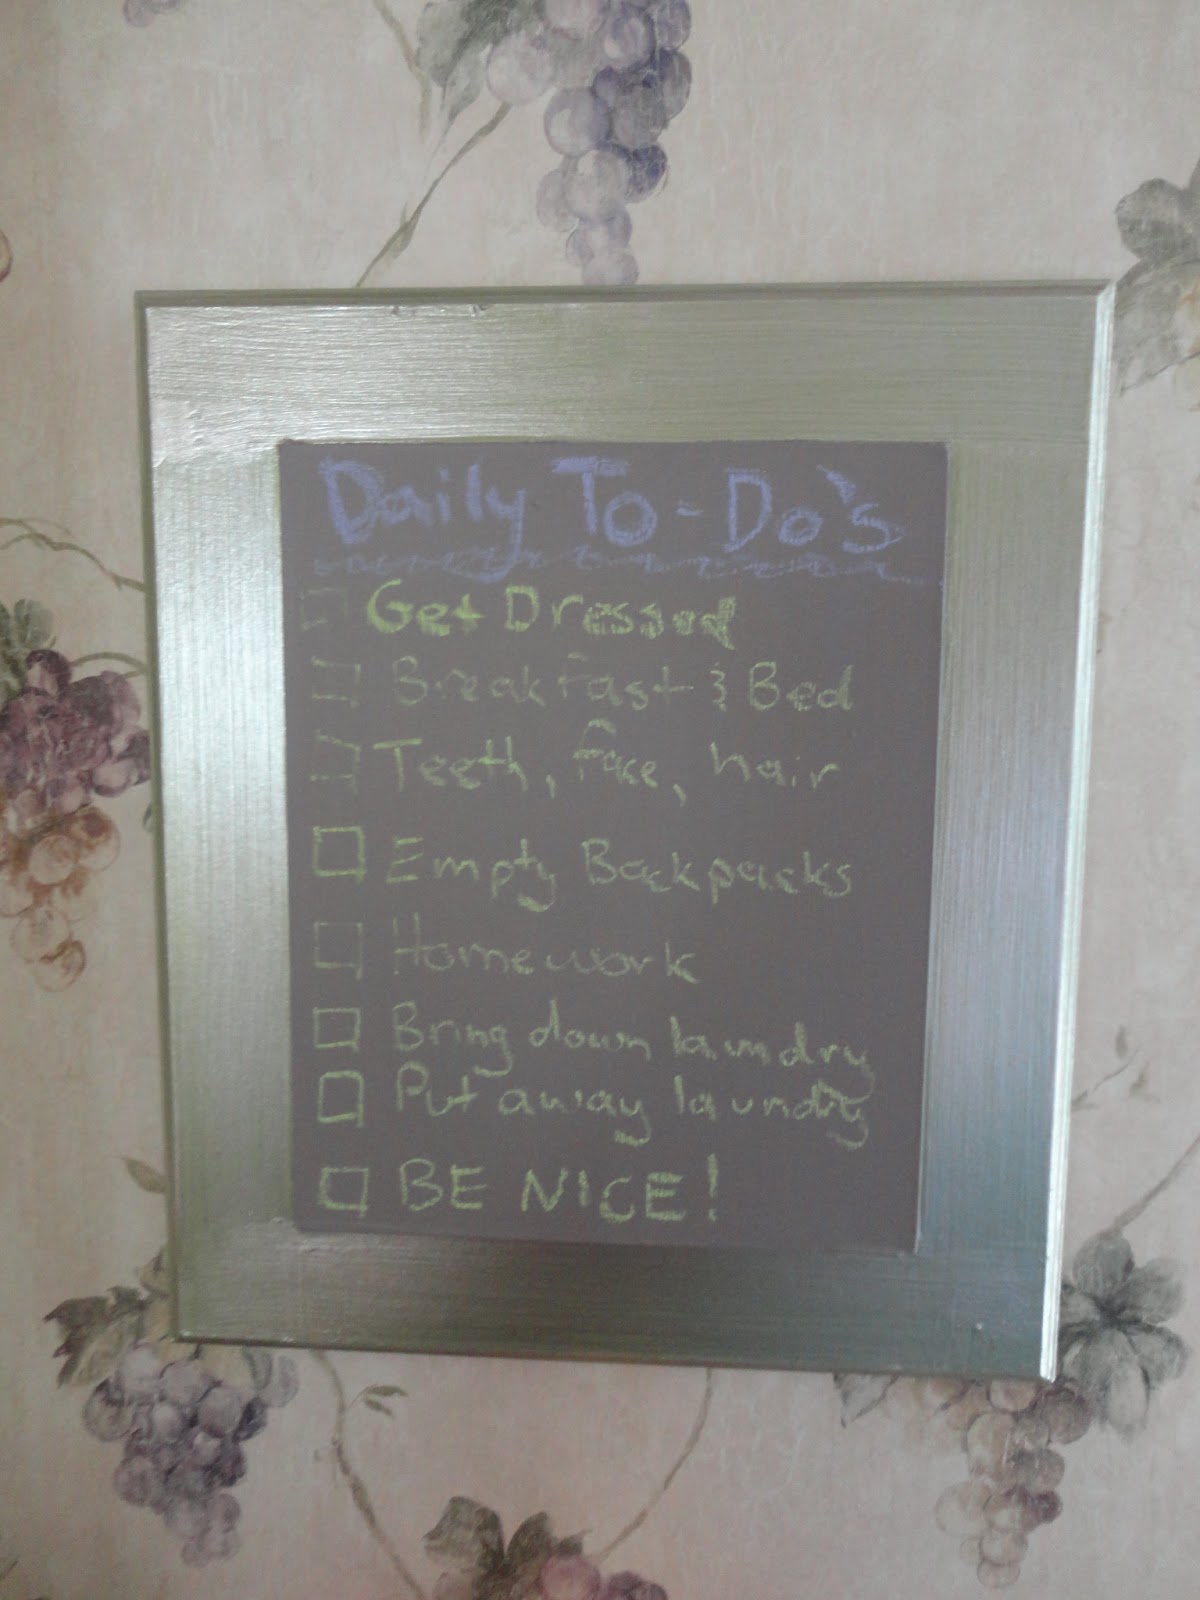 Daily To-Do's
Get Dressed
Breakfast & Bed
Teeth, face, hair
Empty Backpacks
Homework
Bring down laundry
Put away laundry
BE NICE!